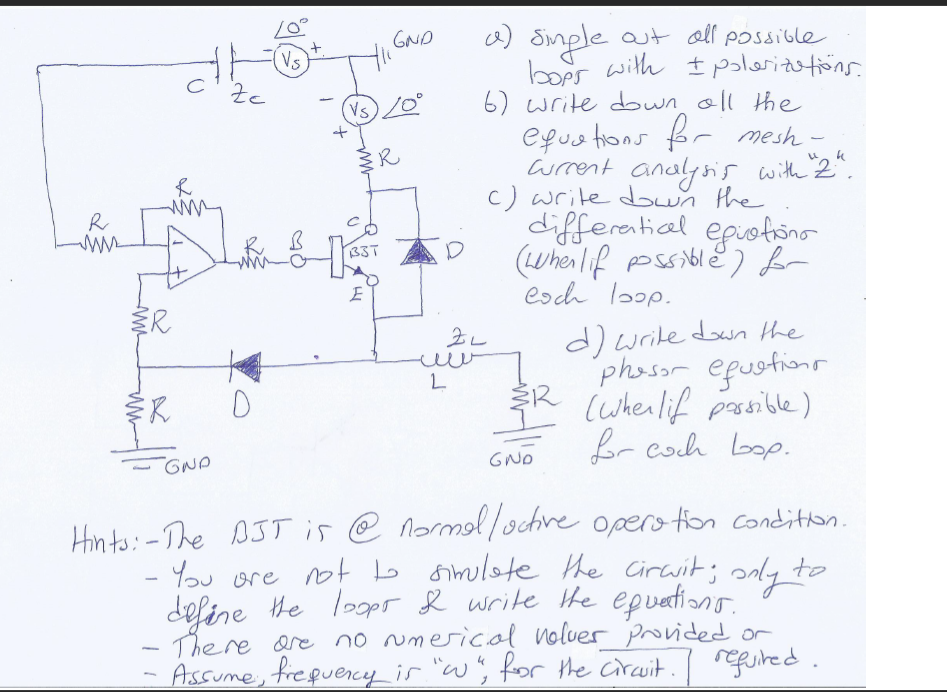 ∠0°
GND
- Vs +
C
Zc
- Vs ∠0°
+
R
R
R
-
+
R
B
C
BJT
E
D
R
ZL
L
D
R
R
GND
GND
a) Single out all possible
loops with ± polarizations.
b) write down all the
equations for mesh-
current analysis with "Z".
c) write down the
differential equations
(when/if possible) for
each loop.
d) write down the
phasor equations
(when/if possible)
for each loop.
Hints: - The BJT is @ normal/active operation condition.
- You are not to simulate the circuit; only to
define the loops & write the equations.
- There are no numerical values provided or
required.
- Assume, frequency is "w", for the circuit.